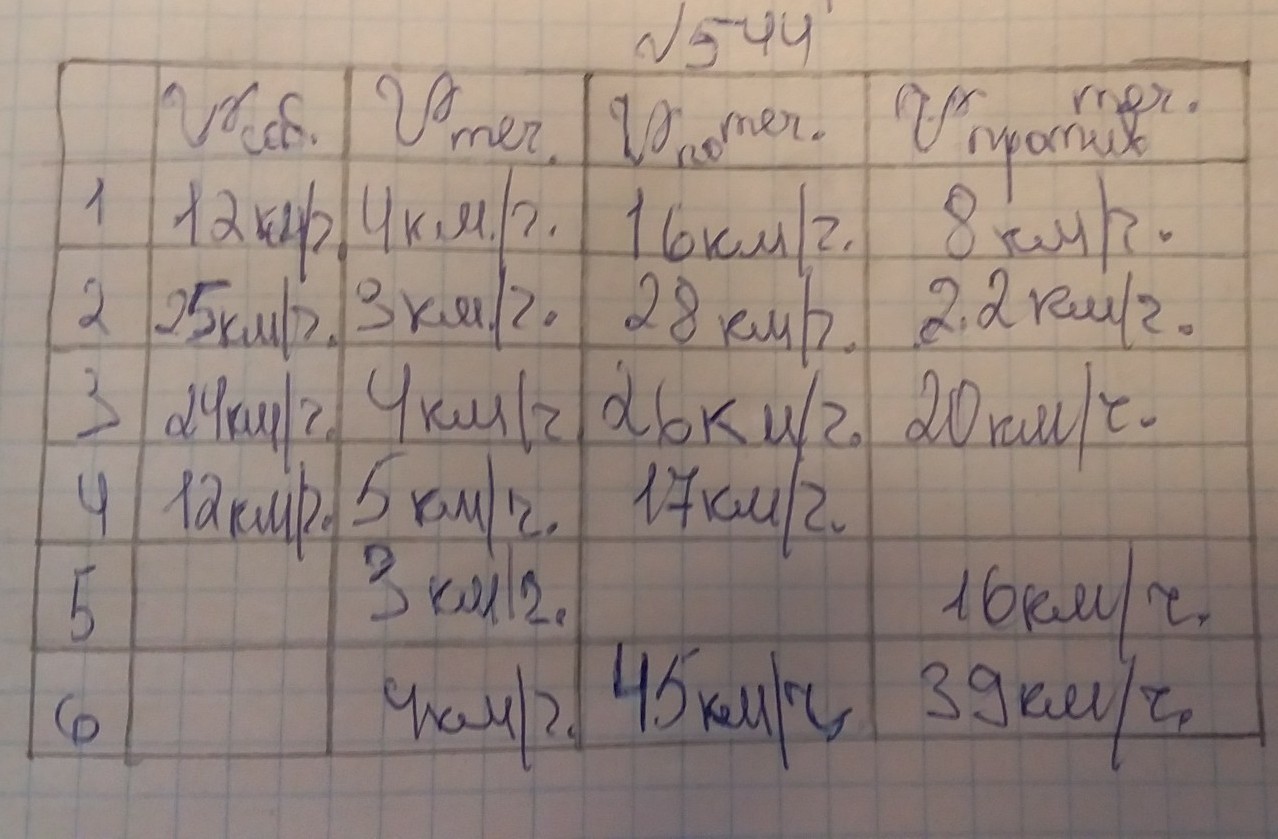 №544
Vсоб. Vтеч. Vпо теч. Vпротив теч.
1 12км/ч 4км./ч. 16км/ч. 8км/ч.
2 25км/ч. 3км./ч. 28км/ч. 22км/ч.
3 24км/ч. 4км/ч 26км/ч. 20км/ч.
4 12км/ч. 5км/ч. 17км/ч.
5 3км/ч. 16км/ч.
6 4км/ч. 45км/ч, 39км/ч.